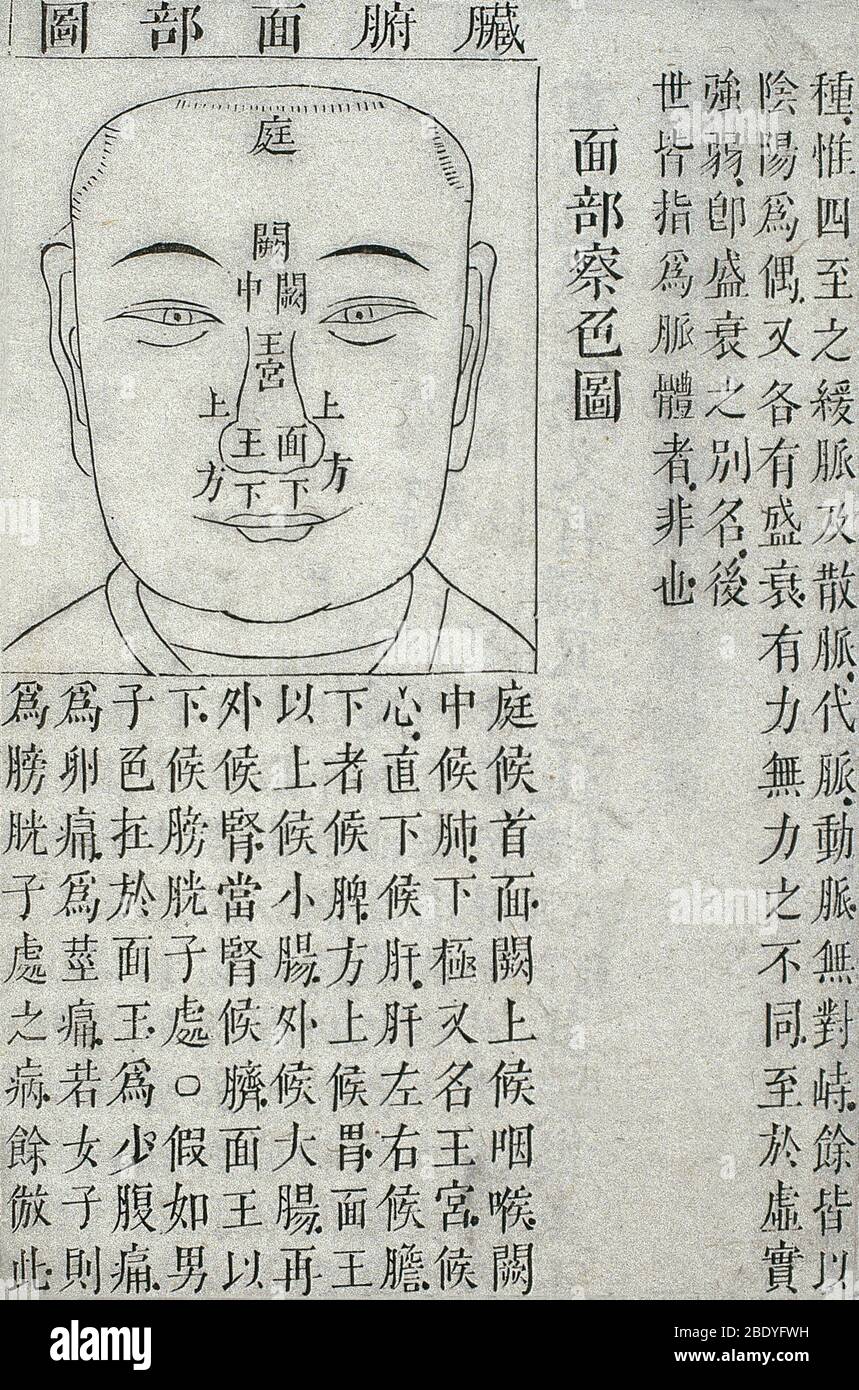 種惟四至之緩脈及散脈代脈動脈無對峙餘皆以
陰陽爲偶又各有盛衰有力無力之不同至於虛實
強弱卽盛衰之別名後
世皆指爲脈體者非也
面部察色圖
臟腑面部圖
庭
闕
中 闕
王宮
上 上
王 面
方 方
下 下
庭候首面闕上候咽喉闕
中候肺下極又名王宮候
心直下候肝肝左右候膽
下者候脾方上候胃面王
以上候小腸外候大腸再
外候腎當腎候臍面王以
下候膀胱子處○假如男
子色在於面王爲少腹痛
爲卵痛爲莖痛若女子則
爲膀胱子處之病餘倣此
alamy
Image ID: 2BDYFWH
www.alamy.com